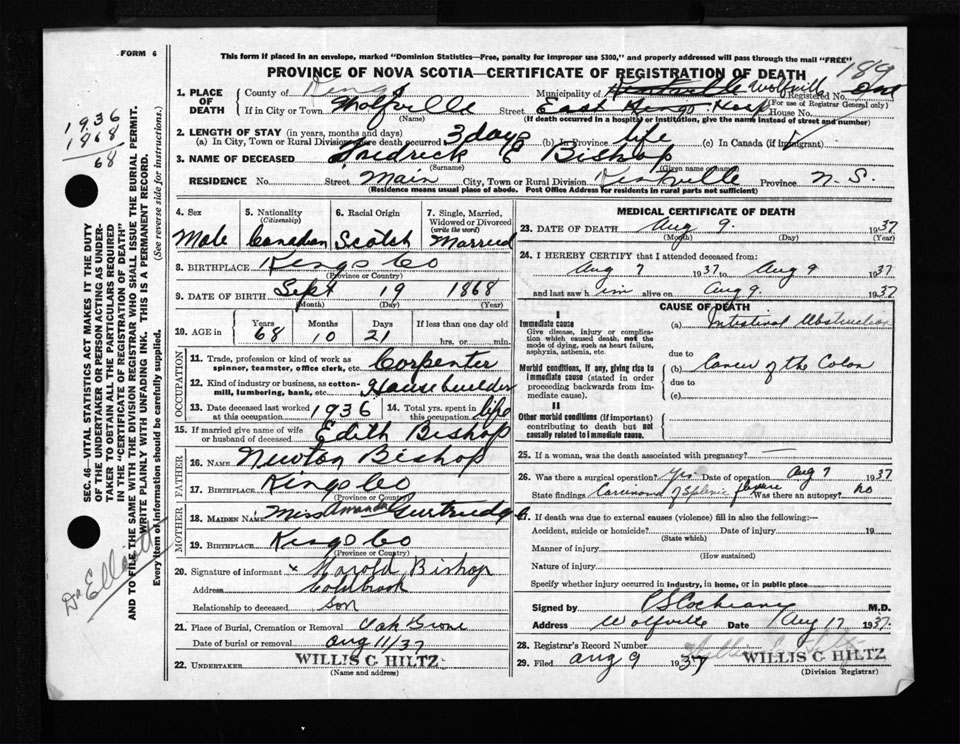 FORM 6
This form if placed in an envelope, marked "Dominion Statistics—Free, penalty for improper use $300," and properly addressed will pass through the mail "FREE"
PROVINCE OF NOVA SCOTIA—CERTIFICATE OF REGISTRATION OF DEATH
189
1. PLACE OF DEATH County of Kings Municipality of Wolfville Registered No.
(For use of Registrar General only)
If in City or Town Wolfville Street East Kings Hosp House No.
(Name) (If death occurred in a hospital or institution, give the name instead of street and number)
2. LENGTH OF STAY (in years, months and days)
(a) In City, Town or Rural Division where death occurred 3 days (b) In Province life (c) In Canada (if immigrant)
3. NAME OF DECEASED Fredrick C Bishop
(Surname) (Given name or names)
RESIDENCE No. Street Main City, Town or Rural Division Kentville Province N.S.
(Residence means usual place of abode. Post Office Address for residents in rural parts not sufficient)
1936
1868
68
SEC. 46—VITAL STATISTICS ACT MAKES IT THE DUTY
OF THE UNDERTAKER OR PERSON ACTING AS UNDER-
TAKER TO OBTAIN ALL THE PARTICULARS REQUIRED
IN THE "CERTIFICATE OF REGISTRATION OF DEATH"
AND TO FILE THE SAME WITH THE DIVISION REGISTRAR WHO SHALL ISSUE THE BURIAL PERMIT.
WRITE PLAINLY WITH UNFADING INK. THIS IS A PERMANENT RECORD.
Every item of information should be carefully supplied. (See reverse side for instructions.)
Dr Elliott
4. Sex 5. Nationality (Citizenship) 6. Racial Origin 7. Single, Married, Widowed or Divorced (write the word)
Male Canadian Scotch Married
8. BIRTHPLACE Kings Co
(Province or Country)
9. DATE OF BIRTH Sept 19 1868
(Month) (Day) (Year)
10. AGE in Years Months Days If less than one day old
68 10 21 hrs. or min.
OCCUPATION
11. Trade, profession or kind of work as spinner, teamster, office clerk, etc. Carpenter
12. Kind of industry or business, as cotton-mill, lumbering, bank, etc. House builder
13. Date deceased last worked at this occupation 1936 14. Total yrs. spent in this occupation life
15. If married give name of wife or husband of deceased Edith Bishop
FATHER
16. NAME Newton Bishop
17. BIRTHPLACE Kings Co
(Province or Country)
MOTHER
18. MAIDEN NAME Miss Amanda Gertrudge
19. BIRTHPLACE Kings Co
(Province or Country)
20. Signature of informant x Harold Bishop
Address Coldbrook
Relationship to deceased son
21. Place of Burial, Cremation or Removal Oak Grove
Date of burial or removal Aug 11/37
22. UNDERTAKER WILLIS C HILTZ
(Name and address)
MEDICAL CERTIFICATE OF DEATH
23. DATE OF DEATH Aug 9. 1937
(Month) (Day) (Year)
24. I HEREBY CERTIFY that I attended deceased from:
Aug 7 1937 to Aug 9 1937
and last saw him alive on Aug 9. 1937
CAUSE OF DEATH
I
Immediate cause
Give disease, injury or complication which caused death, not the mode of dying, such as heart failure, asphyxia, asthenia, etc.
(a) Intestinal Obstruction
due to
Morbid conditions, if any, giving rise to immediate cause (stated in order proceeding backwards from immediate cause).
(b) Cancer of the Colon
due to
(c)
II
Other morbid conditions (if important) contributing to death but not causally related to immediate cause.
25. If a woman, was the death associated with pregnancy? —
26. Was there a surgical operation? Yes Date of operation Aug 7 1937
State findings Carcinoma of splenic flexure Was there an autopsy? no
27. If death was due to external causes (violence) fill in also the following:—
Accident, suicide or homicide? Date of injury 19
(State which)
Manner of injury
(How sustained)
Nature of injury
Specify whether injury occurred in industry, in home, or in public place
Signed by P S Cochrane M.D.
Address Wolfville Date Aug 17 1937
28. Registrar's Record Number
29. Filed Aug 9 1937 WILLIS C HILTZ
(Division Registrar)